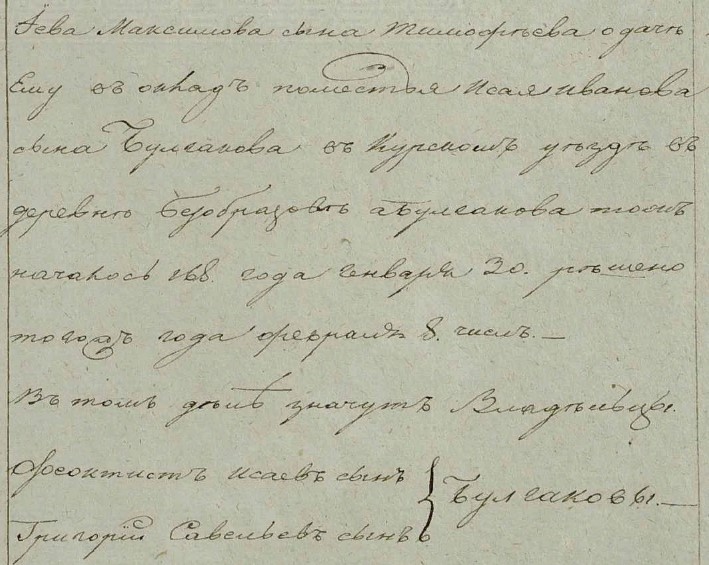 Иева Максимова сына Тимофѣева о дачѣ
Ему въ окладъ поместья Исая Иванова
сына Булгакова въ Курскомъ уѣздѣ въ
деревнѣ Безобразовѣ а Булгакова тожъ
началось 168. года Генваря 30. рѣшено
тогожъ года февраля 8. числъ. —
Въ томъ дѣлѣ значутъ Владѣльцы.
Феоктистъ Исаевъ сынъ
Григорій Савельевъ сынъ } Булгаковы. —